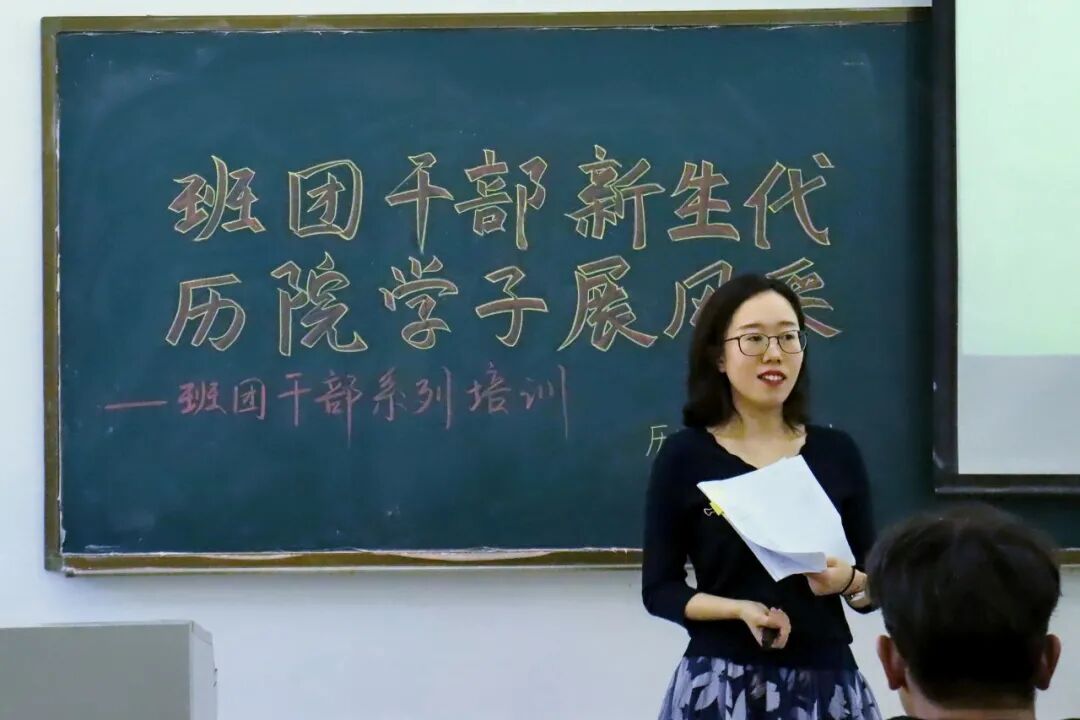 班团干部新生代
历院学子展风采
——班团干部系列培训
历